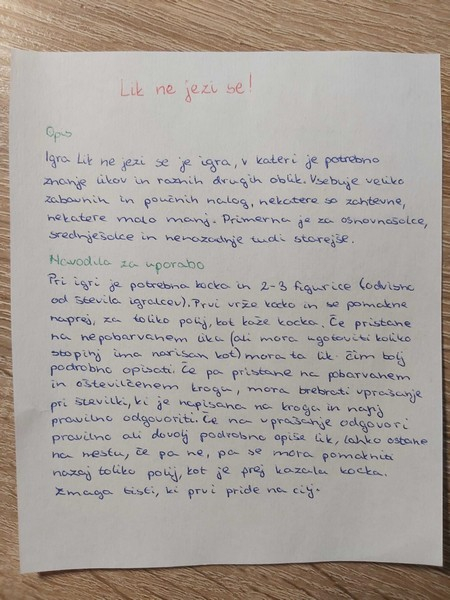 Lik ne jezi se!
Opis
Igra Lik ne jezi se je igra, v kateri je potrebno
znanje likov in raznih drugih oblik. Vsebuje veliko
zabavnih in poučnih nalog, nekatere so zahtevne,
nekatere malo manj. Primerna je za osnovnošolce,
srednješolce in nenazadnje tudi starejše.
Navodila za uporabo
Pri igri je potrebna kocka in 2-3 figurice (odvisno
od števila igralcev). Prvi vrže kocko in se pomakne
naprej, za toliko polij, kot kaže kocka. Če pristane
na nepobarvanem liku (ali mora ugotoviti koliko
stopinj ima narisan kot) mora ta lik čim bolj
podrobno opisati. Če pa pristane na pobarvanem
in oštevilčenem krogu, mora prebrati vprašanje
pri številki, ki je napisana na krogu in nanj
pravilno odgovoriti. Če na vprašanje odgovori
pravilno ali dovolj podrobno opiše lik, lahko ostane
na mestu, če pa ne, pa se mora pomakniti
nazaj toliko polij, kot je prej kazala kocka.
Zmaga tisti, ki prvi pride na cilj.